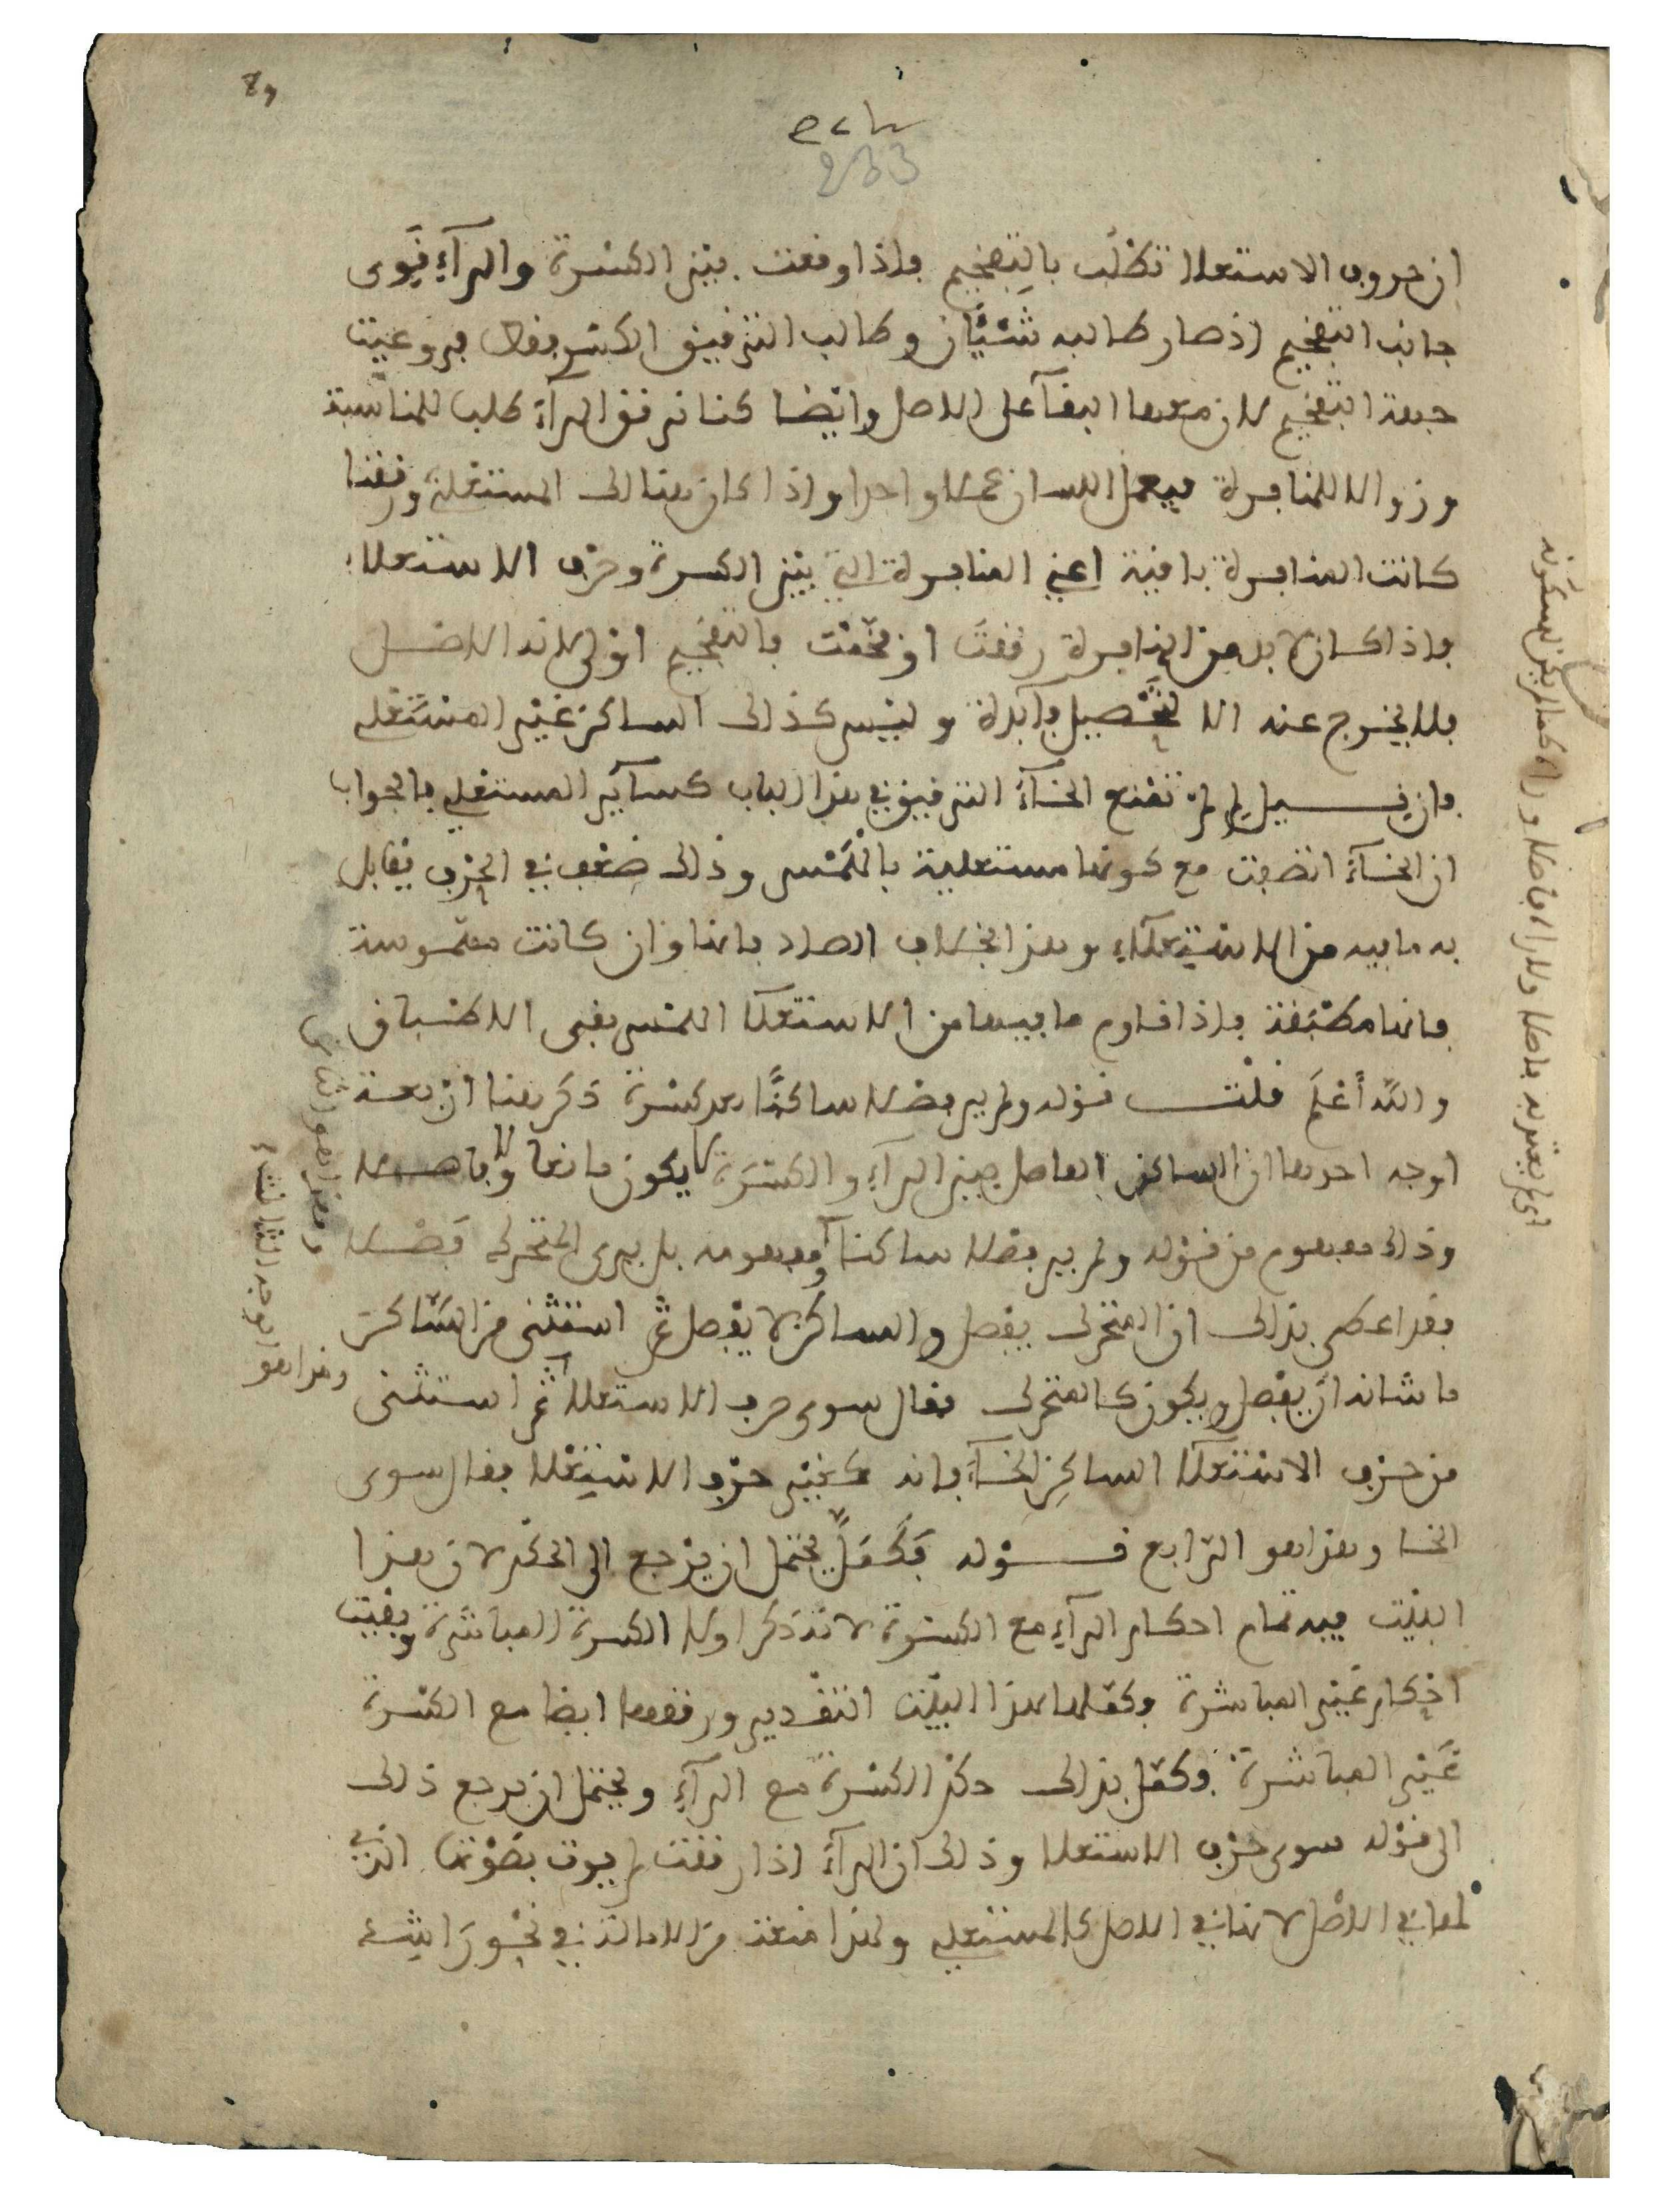 233
ان حروف الاستعلا تطلب بالتفخيم فاذا وقعت بين الكسرة والرآء قوى
جانب التفخيم اذ صار طالبه شيئان وطالب الترقيق الكسر فقط فروعيت
جهة التفخيم لان معها البقآ على الاصل وايضا كنا نرقق الرآء طلبا للمناسبة
وزوالا للمنافرة فيعمل اللسان عملا واحدا واذا كان هنالك المستعلي ورققنا
كانت المنافرة باقية اعني المنافرة التي بين الكسرة وحرف الاستعلاء
فاذا كان لا بد من المنافرة رققت او فخمت فالتفخيم اولى لانه الاصل
فلا يخرج عنه الا لتحصيل فآئدة وليس كذلك الساكن غير المستعلي
فان قيل لم لم تمنع الخآء الترقيق في هذا الباب كسآئر المستعلي فالجواب
ان الخآء اتصفت مع كونها مستعلية بالهمس وذلك ضعف في الحرف يقابل
به ما فيه من الاستعلآء وهذا بخلاف الصاد فانها وان كانت مهموسة
فانها مطبقة فاذا قاوم ما فيها من الاستعلآ الهمس بقي الاطباق
والله أعلم قلت قوله ولم ير فصلا ساكنًا بعد كسرة ذكر هنا اربعة
اوجه احدها ان الساكن الفاصل بين الرآء والكسرة لا يكون مانعا ولا فاصلا
وذلك مفهوم من قوله ولم ير فصلا ساكنا ومفهومه بل يرى المتحرك فصلا
فقد اعطى بذلك ان المتحرك يفصل والساكن لا يفصل ثم استثنى من الساكن
ما شانه ان يفصل ويكون كالمتحرك فقال سوى حرف الاستعلا ثم استثنى
من حرف الاستعلآ الساكن الخآء فانه كغير حرف الاستعلا فقال سوى
الخا وهذا هو الرابع قوله فكمّلا يحتمل ان يرجع الى الحكم لان بهذا
البيت فيه تمام احكام الرآء مع الكسرة لانه ذكر اولا الكسرة المباشرة وبقيت
احكام غير المباشرة فكملها بهذا البيت التقدير ورققها ايضا مع الكسرة
غير المباشرة وكمل بذلك حكم الكسرة مع الرآء ويحتمل ان يرجع ذلك
الى قوله سوى حرف الاستعلا وذلك ان الرآء اذا رققت لم يوت بصوتها الذي
لها في الاصل لانها في الاصل كالمستعلي ولهذا منعت من الامالة في نحو راشد
وهذا هو الثاني
وهذا هو
الوجه الثالث